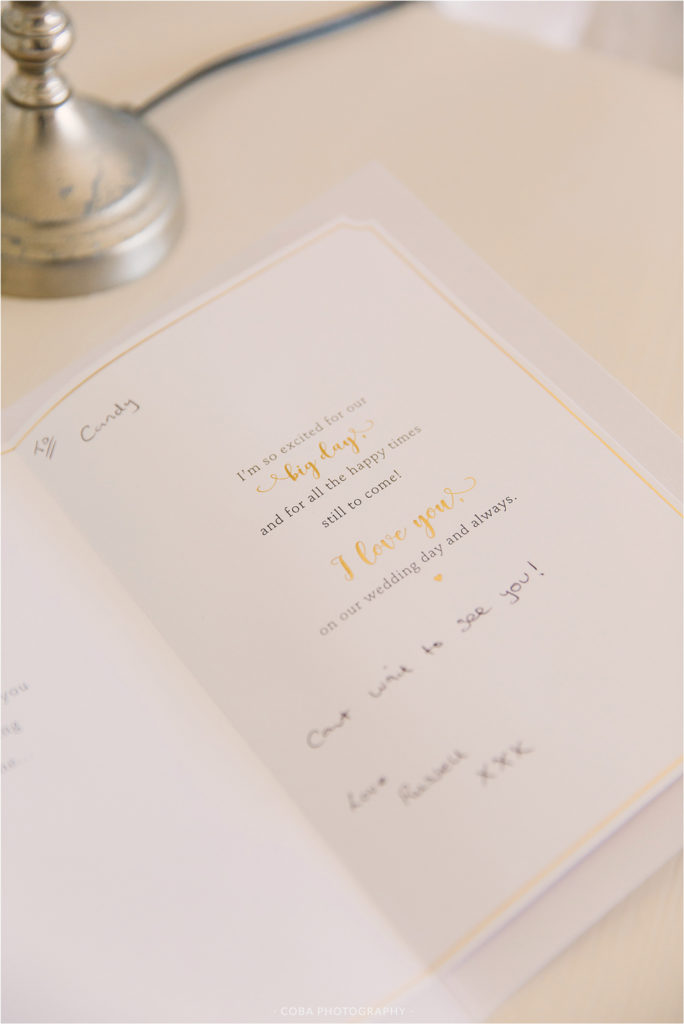 To Candy
I'm so excited for our
big day,
and for all the happy times
still to come!
I love you,
on our wedding day and always.
Cant wait to see you!
Love Russell xxx
you
- COBA PHOTOGRAPHY -